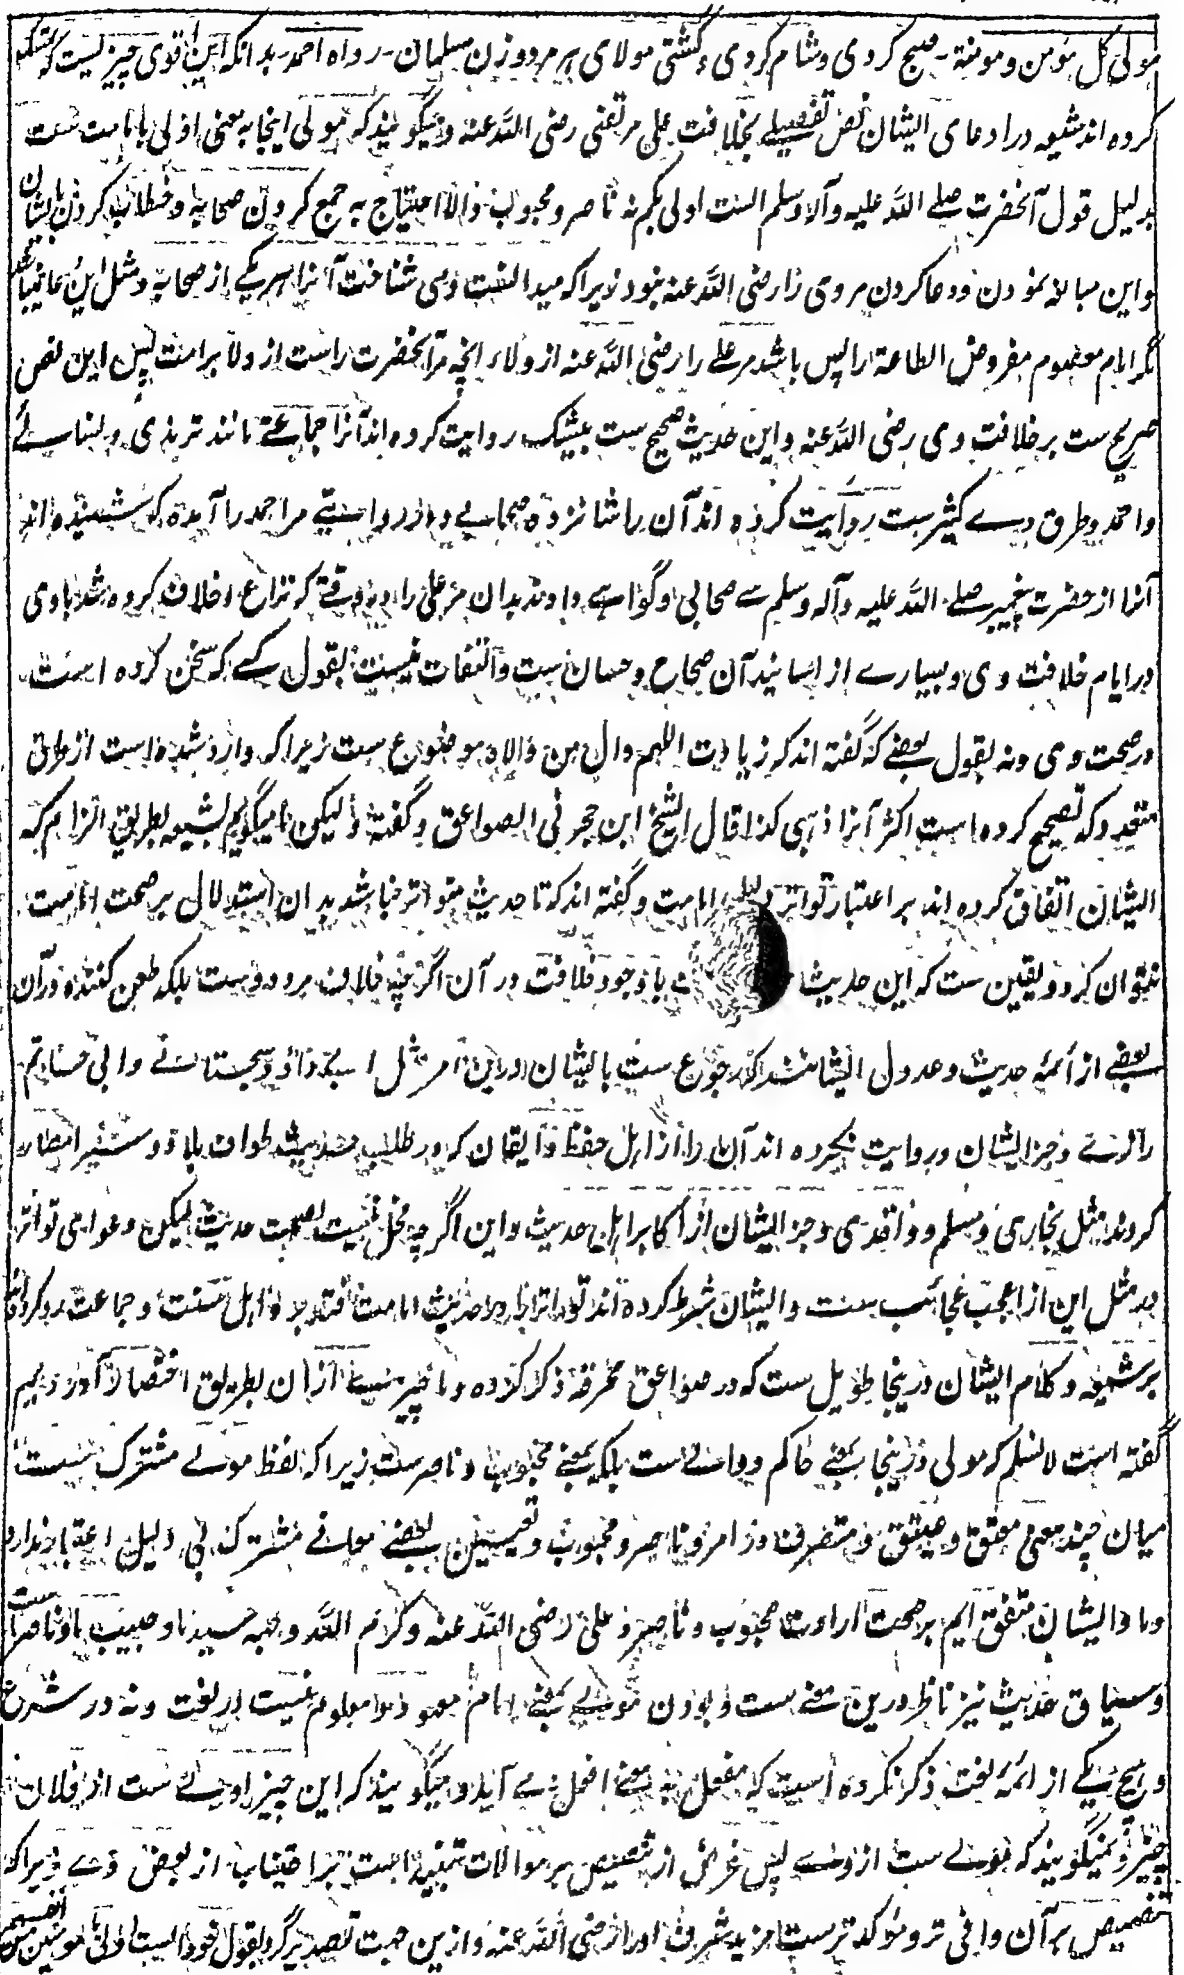 مولی کل مؤمن و مومنة ـ صبح کردی و شام کردی و گشتی مولای هر مرد و زن مسلمان ـ رواه احمد ـ بدانکه این اقوی چیزیست که تمسک
کرده اند شیعه در ادعای ایشان نص تفصیلے بخلافت علی مرتضی رضی الله عنه و میگویند که مولی اینجا بمعنی اولی بامامت ست
بدلیل قول آنحضرت صلے الله علیه و آله وسلم الست اولی بکم نه ناصر و محبوب و الا احتیاج به جمع کردن صحابه و خطاب کردن بایشان
و این مبالغه نمودن و دعا کردن مر وی را رضی الله عنه نبود زیرا که میدانست و می شناخت آنرا هر یکے از صحابه و مثل این دعا نمیباشد
مگر امام معصوم مفروض الطاعة را پس باشد مر علے را رضی الله عنه از ولاء انچه مر آنحضرت راست از ولا بر امت پس این نص
صریح ست بر خلافت وی رضی الله عنه و این حدیث صحیح ست بیشک روایت کرده اند آنرا جماعتے مانند ترمذی و نسائے
و احمد و طرق وے کثیر ست روایت کرده اند آن را شانزده صحابے و در روایتے مر احمد را آمده که شنیده اند
آنرا از حضرت پیغمبر صلے الله علیه و آله وسلم سے صحابی و گواهے دادند بدان مر علی را در وقتے که نزاع و خلاف کرده شد با وی
در ایام خلافت وی و بسیارے از اسانید آن صحاح و حسان ست و التفات نیست بقول کسے که سخن کرده است
در صحت وی و نه بقول بعضے که گفته اند که زیادت اللهم وال من والاه موضوع ست زیرا که وارد شده است از طرق
متعدد که تصحیح کرده است اکثر آنرا ذهبی کذا قال الشیخ ابن حجر فی الصواعق و گفته و لیکن ما میگوئیم بشیعه بطریق الزام که
ایشان اتفاق کرده اند بر اعتبار تواتر دلیل امامت و گفته اند که تا حدیث متواتر نباشد بدان استدلال بر صحت امامت
نتوان کرد و یقین ست که این حدیث با وجود خلاف در آن اگر چه خلاف مردود ست بلکه طعن کننده در آن
بعضے از أئمه حدیث و عدول ایشانند که رجوع ست بایشان درین امر مثل ابے داؤد سجستانے و ابی حاتم
رازے و جز ایشان و روایت نکرده اند آن را از اهل حفظ و ایقان که در طلب حدیث طواف بلاد و سیر امصار
کردند مثل بخاری و مسلم و واقدی و جز ایشان از اکابر اهل حدیث و این اگر چه مخل نیست بصحت حدیث لیکن دعوای تواتر
در مثل این از اعجب عجائب ست و ایشان شرط کرده اند تواتر را در حدیث امامت و اهل سنت و جماعت رد کرده اند
بر شیعه و کلام ایشان درینجا طویل ست که در صواعق محرقه ذکر کرده و ما چیزے از ان بطریق اختصار آوردیم
گفته است لا نسلم که مولی درینجا بمعنے حاکم و والے ست بلکه بمعنے محبوب و ناصر ست زیرا که لفظ مولے مشترک ست
میان چند معنی معتق و عتیق و متصرف در امر و ناصر و محبوب و تعیین بعضے معانے مشترک بی دلیل اعتبار ندارد
و ما و ایشان متفق ایم بر صحت ارادت محبوب و ناصر و علی رضی الله عنه و کرم الله وجهه سیدنا و حبیب ما و ناصر ماست
و سیاق حدیث نیز ناظر درین معنے ست و بودن مولے بمعنے امام معهود و معلوم نیست در لغت و نه در شرع
و هیچ یکے از ائمه لغت ذکر نکرده است که مفعل به معنے افعل مے آید و میگویند که این چیز اولے ست از فلان
چیز و نمیگویند که مولے ست از وے پس غرض از تنصیص بر موالات تنبیه است بر اجتناب از بغض وے زیرا که
تنصیص بر آن وافی تر و موکد تر ست مزید شرف او را رضی الله عنه و ازین جهت تصدیر کرد بقول خود الست اولی بالمومنین من انفسهم